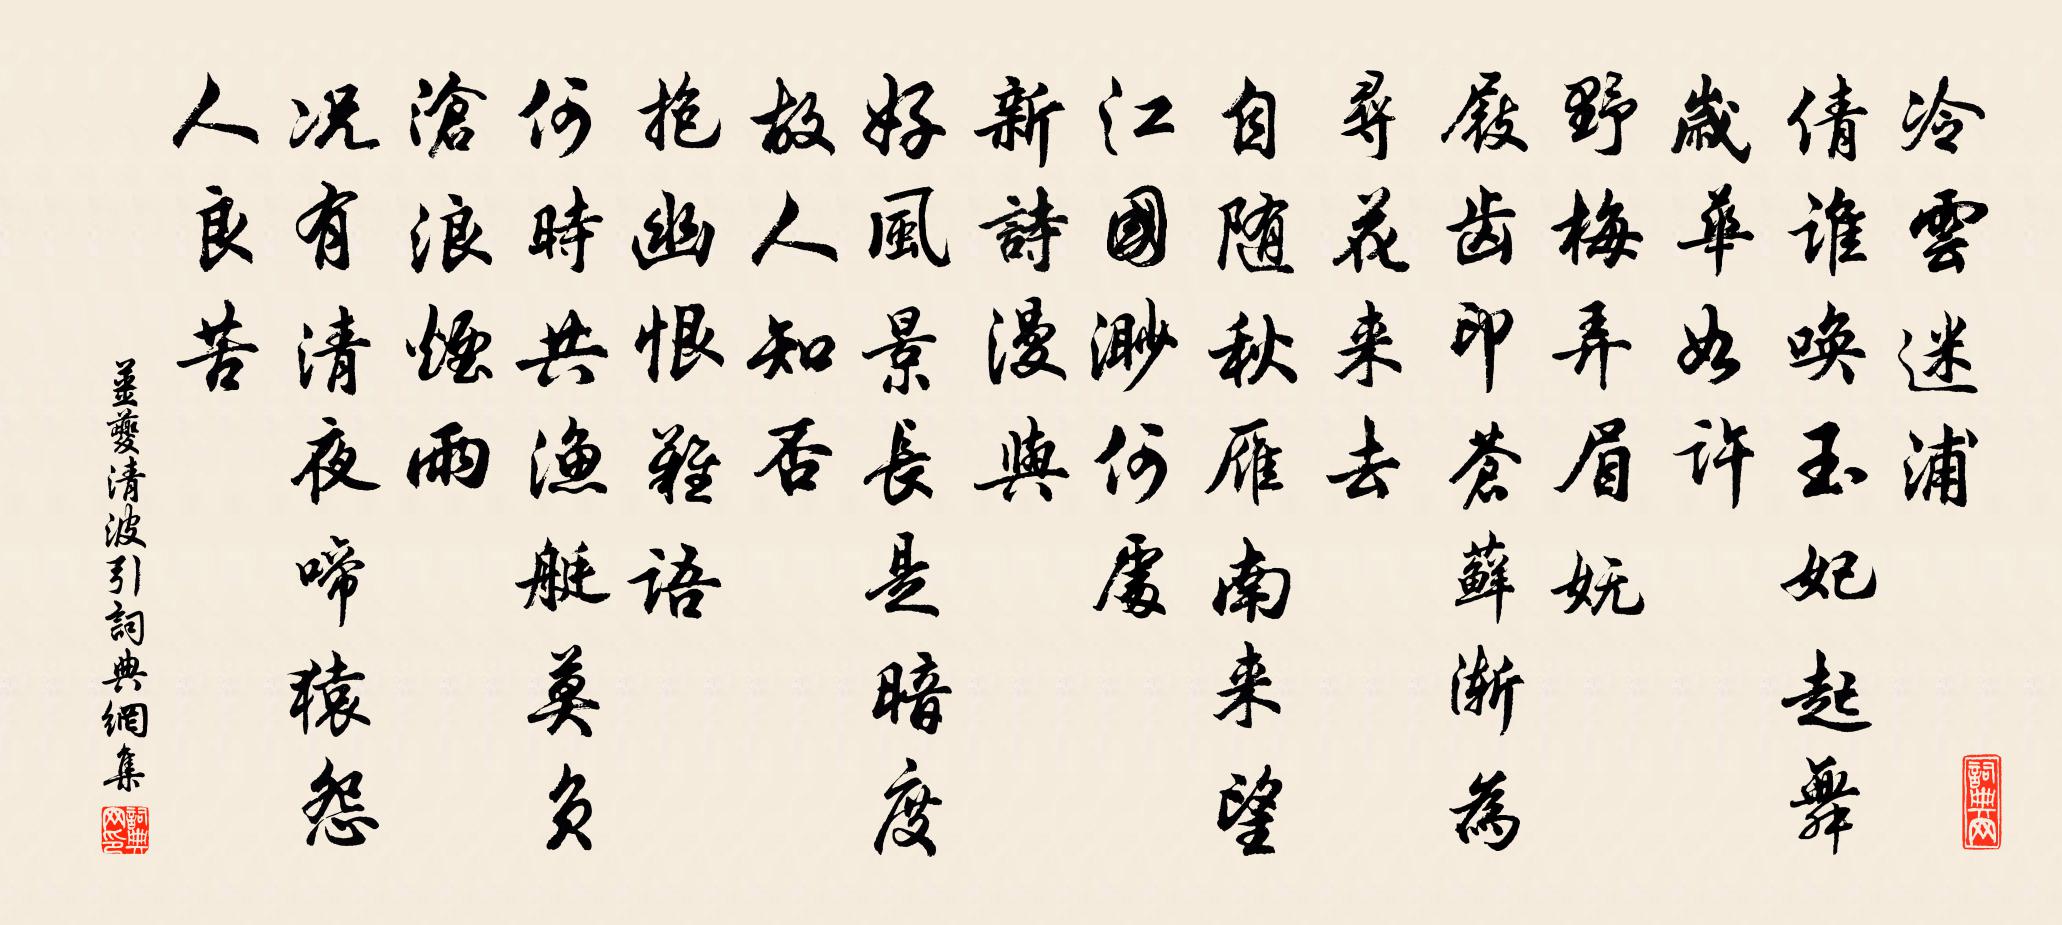 冷雲迷浦
倩誰喚玉妃起舞
歲華如許
野梅弄眉嫵
屐齒印蒼蘚漸為
尋花来去
自随秋雁南来望
江國渺何處
新詩漫與
好風景長是暗度
故人知否
抱幽恨難語
何時共漁艇莫負
滄浪煙雨
况有清夜啼猿怨
人良苦
姜夔清波引詞典網集
詞典网
詞典网印